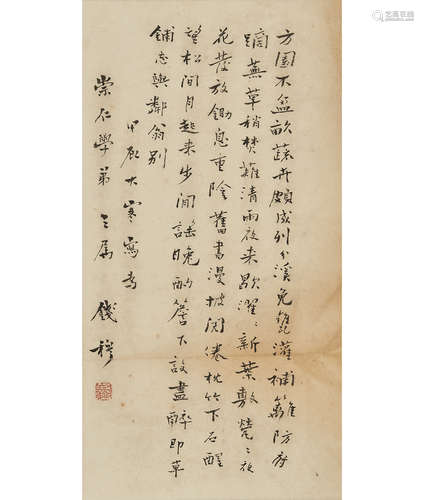 方園不盈畝蔬卉頗成列分溪免甕灌補籬防虎
蹢蕪草稍焚薙清雨夜來歇濯〻新葉敷熒〻夜
花發放鋤息重陰舊書漫披閱倦枕竹下石醒
望松間月起來步閒謠晚酌簷下設盡醉即草
鋪忘與鄰翁別
甲辰大寒寫為
崇仁學弟之屬 錢穆